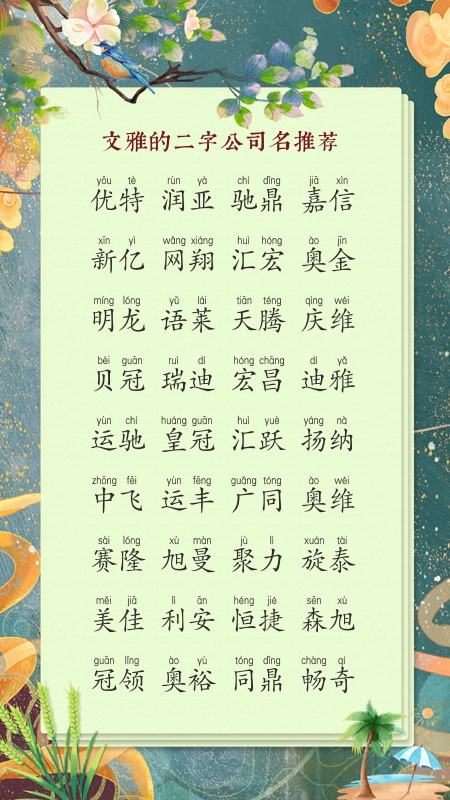 文雅的二字公司名推荐
yōu tè rùn yà chí dǐng jiā xìn
优特 润亚 驰鼎 嘉信
xīn yì wǎng xiáng huì hóng ào jīn
新亿 网翔 汇宏 奥金
míng lóng yǔ lái tiān téng qìng wéi
明龙 语莱 天腾 庆维
bèi guān ruì dí hóng chāng dí yǎ
贝冠 瑞迪 宏昌 迪雅
yùn chí huáng guān huì yuè yáng nà
运驰 皇冠 汇跃 扬纳
zhōng fēi yùn fēng guǎng tóng ào wéi
中飞 运丰 广同 奥维
sài lóng xù màn jù lì xuán tài
赛隆 旭曼 聚力 旋泰
měi jiā lì ān héng jié sēn xù
美佳 利安 恒捷 森旭
guān lǐng ào yù tóng dǐng chàng qí
冠领 奥裕 同鼎 畅奇